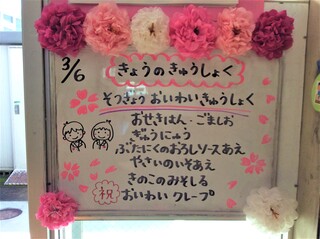 3/6
きょうのきゅうしょく
そつぎょうおいわいきゅうしょく
おせきはん・ごましお
ぎゅうにゅう
ぶたにくのおろしソースあえ
やさいのいそあえ
きのこのみそしる
祝 おいわい クレープ